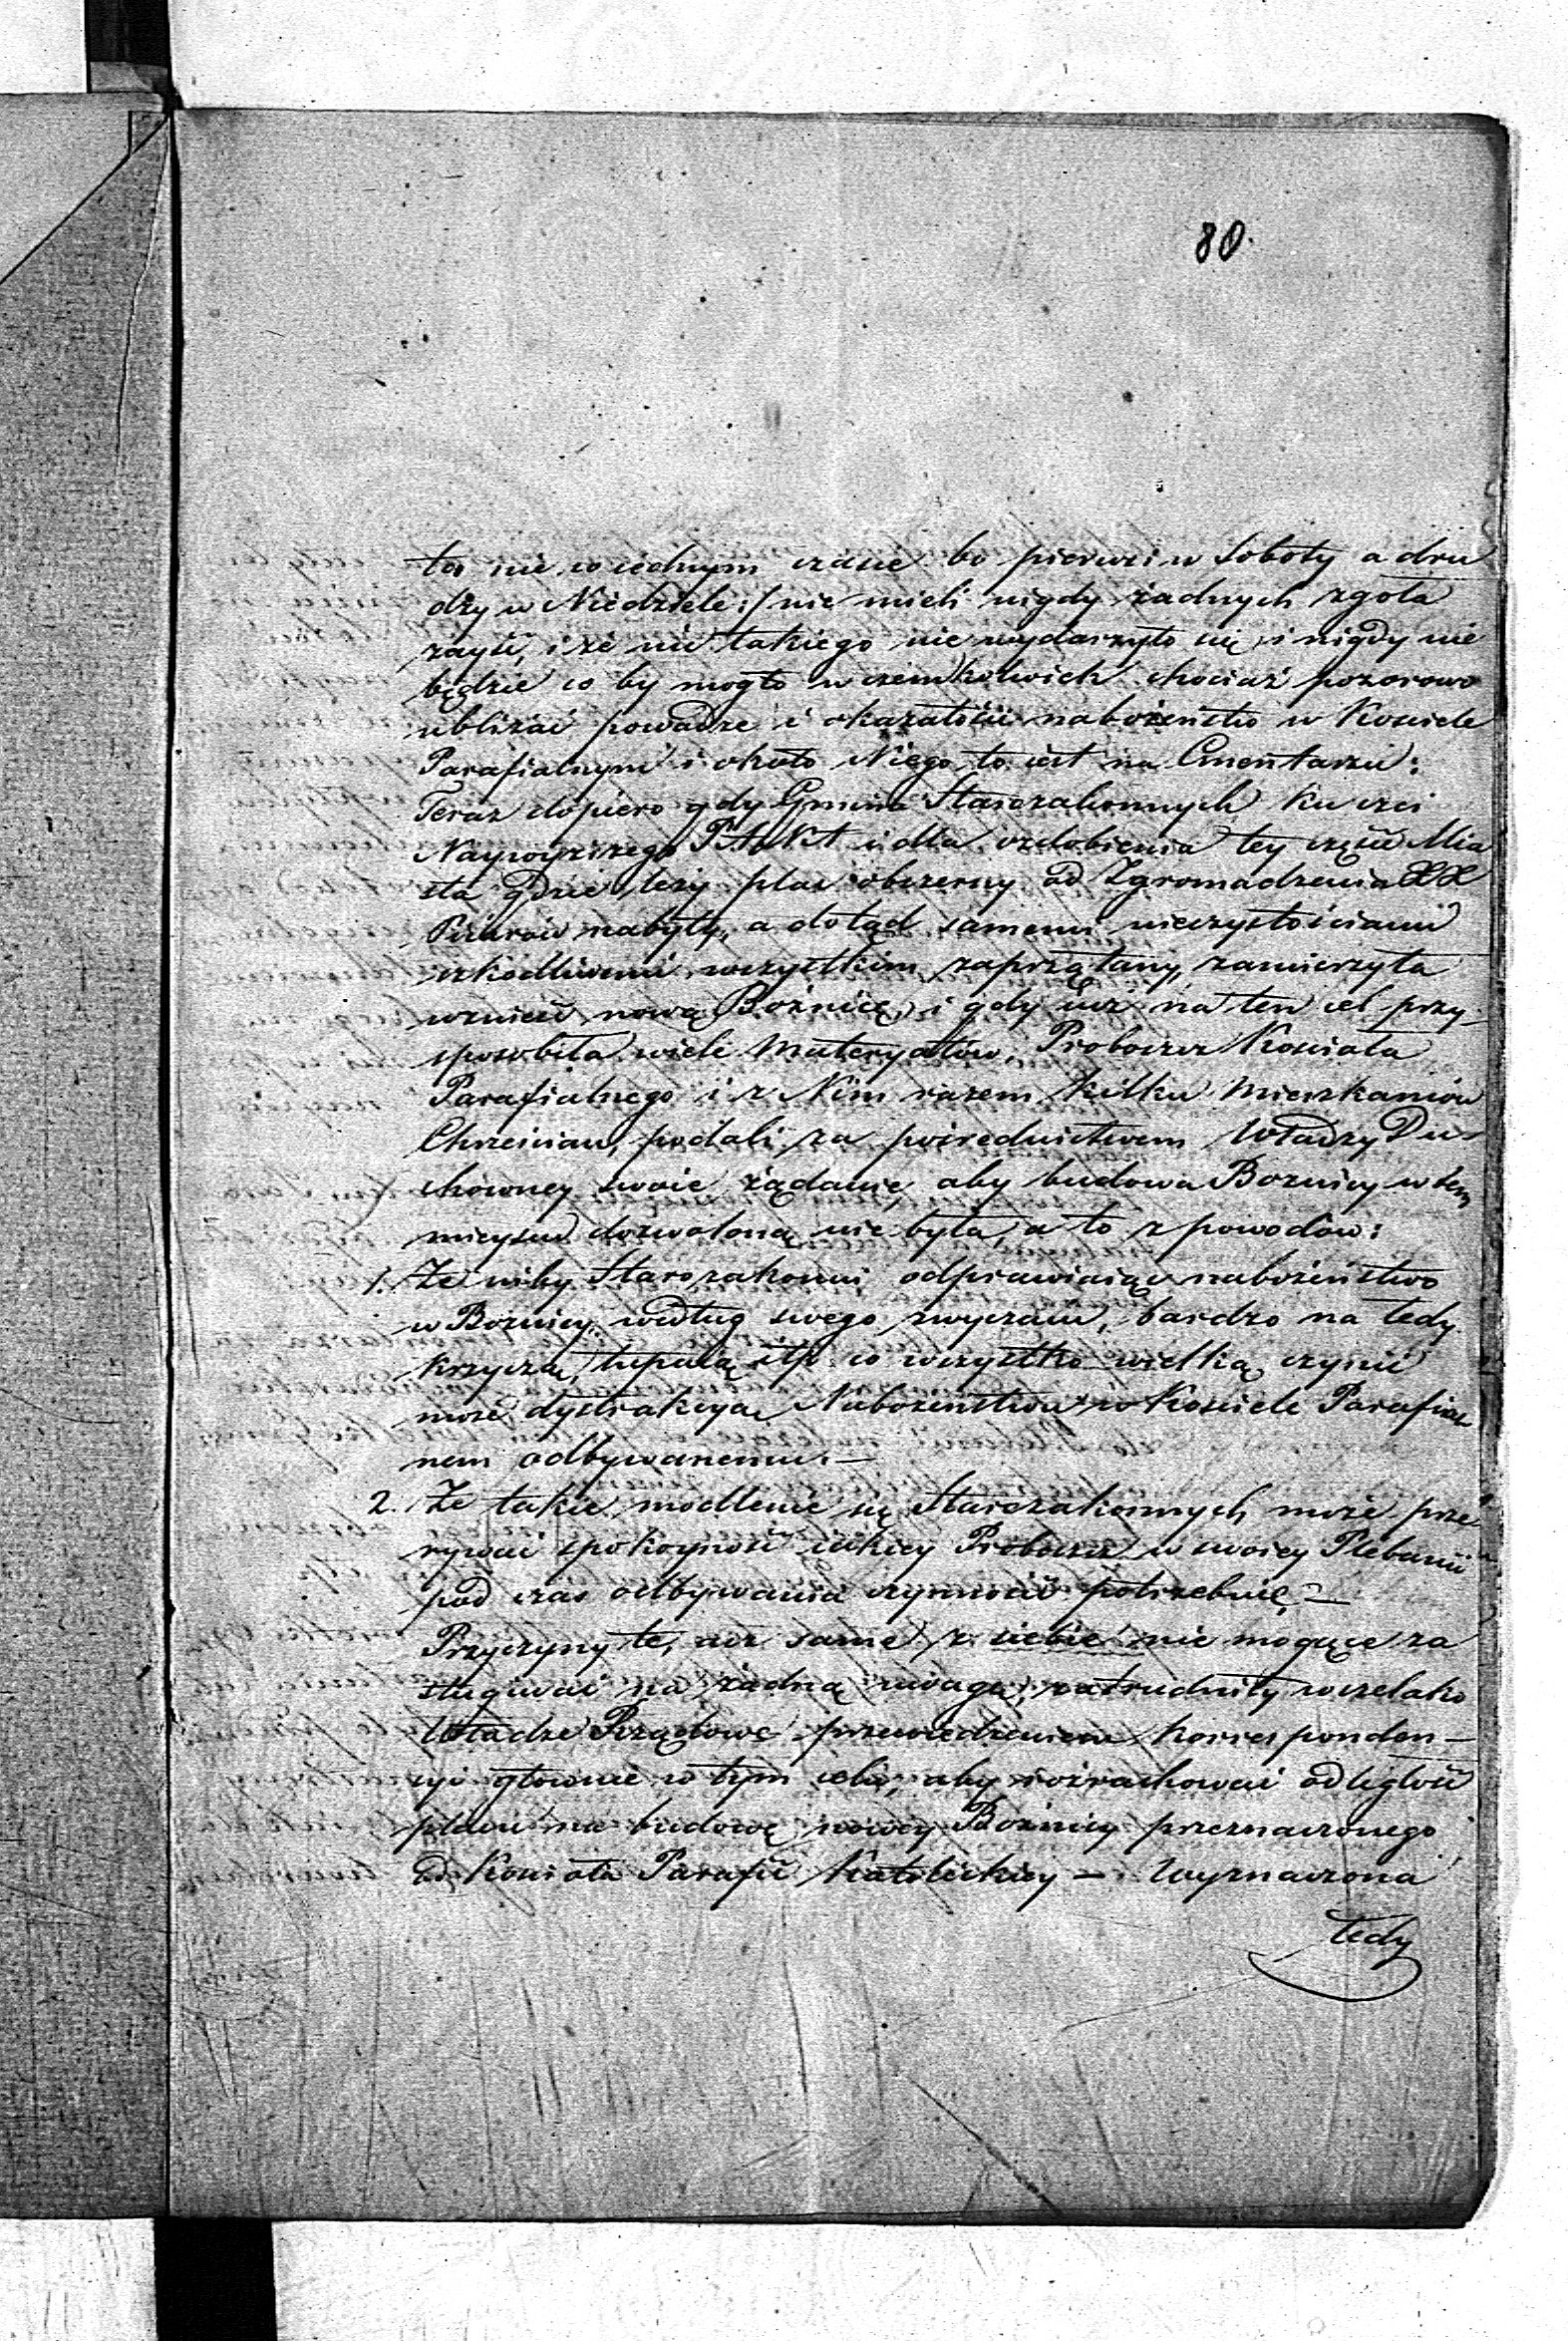 80.
to nie w iednym czasie bo pierwsi w Soboty a dru
dzy w Niedziele:/ nie mieli nigdy żadnych zgoła
zayść, i że nic takiego nie wydarzyło się i nigdy nie
będzie co by mogło w czemkolwiek chociaż pozorowo
ubliżać powadze i okazałości nabożeństw w Kościele
Parafialnym i około Niego to iest na Cmentarzu:
Teraz dopiero gdy Gmina Starozakonnych ku czci
Naywyższego PANA i dla ozdobienia tey części Mia
sta gdzie leży plac obszerny od Zgromadzenia XX
Piiarów nabyty, a dotąd samemi nieczystościami
szkodliwemi wszystkim zaprzątany, zamierzyła
wznieść nową Bożnicę, i gdy iuż na ten cel przy-
sposobiła wiele Materyałów, Proboszcz Kościoła
Parafialnego i z Nim razem kilku Mieszkańców
Chrześcian, podali za pośrednictwem Władzy Du-
chowney swoie żądanie, aby budowa Bożnicy w tem
mieyscu dozwoloną nie była, a to z powodów:
1. Że niby Starozakonni odprawiaiąc nabożeństwo
w Bożnicy według swego zwyczaiu, bardzo na tedy
krzyczą, tupaią itp. co wszystko wielką czynić
może dystrakcyą Nabożeństwu w Kościele Parafial
nem odbywanemu.—
2. Że takie modlenie się Starozakonnych może prze
rywać spokoyność iakiey Proboszcz w swoiey Plebanii
pod czas odbywania czynności potrzebuie,—
Przyczyny te, acz same z siebie nie mogące za
sługiwać na żadną uwagę, zatrudniły wszelako
Władze Rządowe prowadzeniem korrespondon-
cyi głownie w tym celu, aby rozrachować odległość
placu na budowę nowey Bożnicy przeznaczonego
od Kościoła Parafii Katolickiey — Wyznaczona
tedy